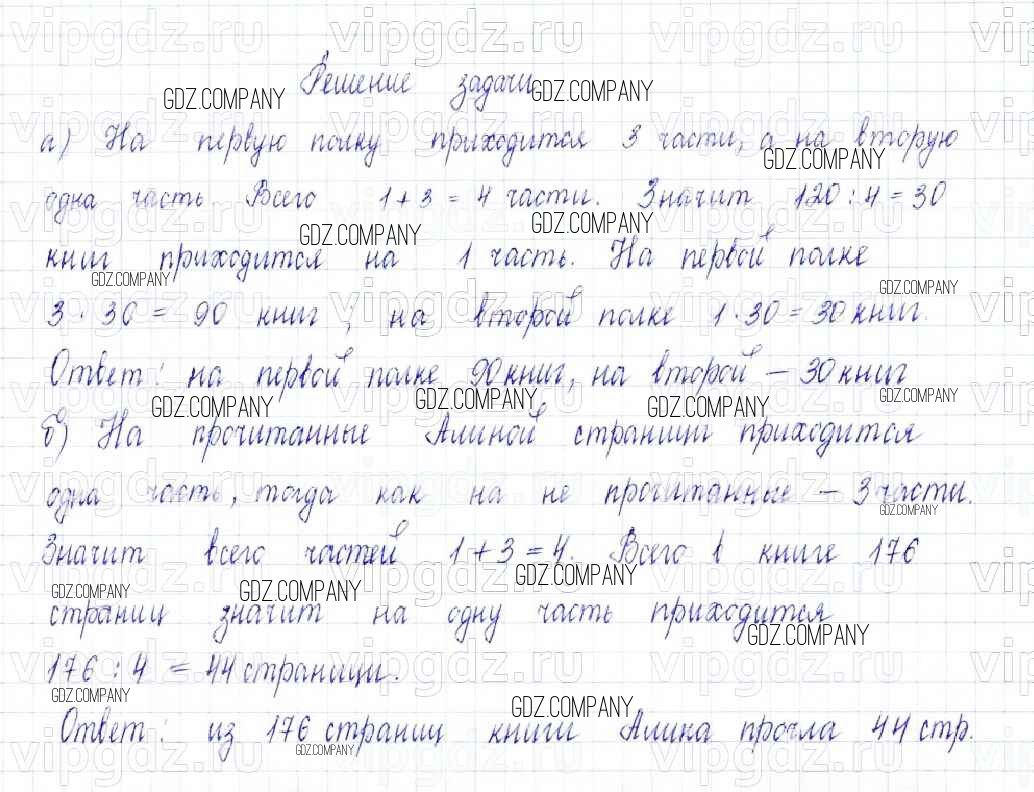 Решение задачи
а) На первую полку приходится 3 части, а на вторую
одна часть. Всего 1 + 3 = 4 части. Значит 120 : 4 = 30
книг приходится на 1 часть. На первой полке
3 · 30 = 90 книг, на второй полке 1 · 30 = 30 книг.
Ответ: на первой полке 90 книг, на второй – 30 книг
б) На прочитанные Алиной страницы приходится
одна часть, тогда как на не прочитанные – 3 части.
Значит всего частей 1 + 3 = 4. Всего в книге 176
страниц значит на одну часть приходится
176 : 4 = 44 страницы.
Ответ: из 176 страниц книги Алина прочла 44 стр.
vipgdz.ru
GDZ.COMPANY